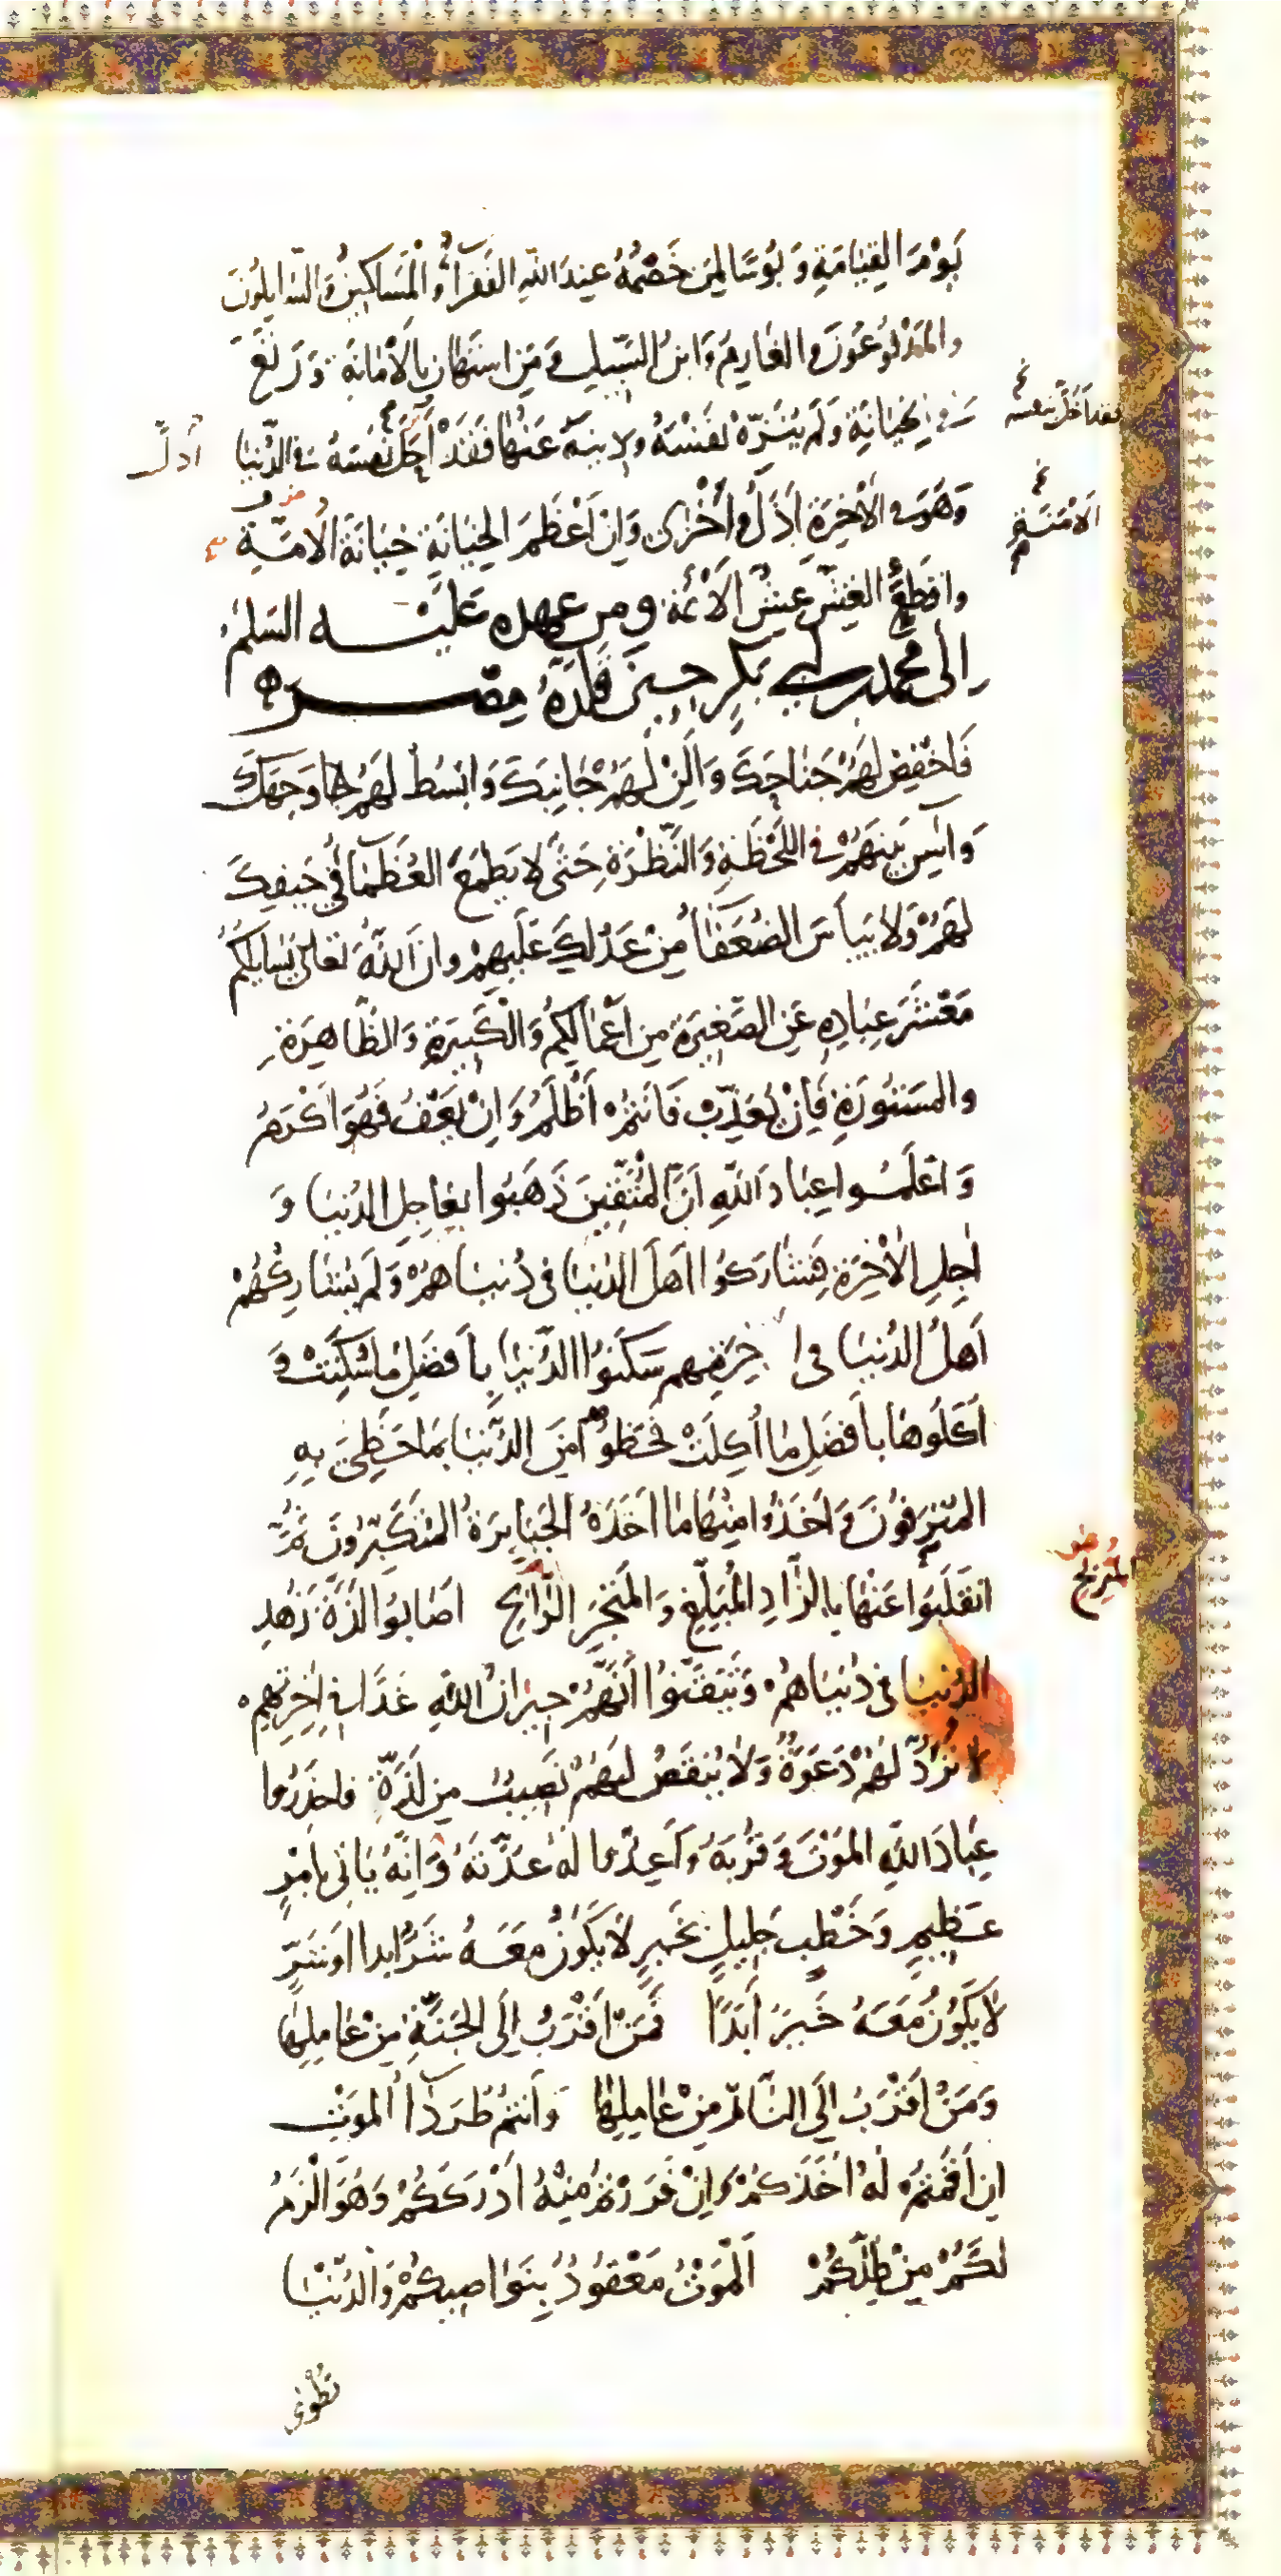 يَوْمَ القِيَامَةِ وَ بُوسًا لِمَن خَصْمُهُ عِندَ اللّهِ الفُقَرَآءُ وَالْمَسَاكِينُ وَالسَّايِلُونَ
والمَدْفُوعُونَ والغَارِمُ وَابنُ السَّبِيلِ وَ مَنِ استَهَانَ بِالأَمَانَةِ وَرَتَعَ
فِي الخِيَانَةِ وَلَم يُنَزِّهْ نَفْسَهُ ودِينَهُ عَنْهَا فَقَدْ أَحَلَّ بِنَفْسِهِ فِي الدُّنْيَا
فقد أخلّ بنفسه
أذلّ
وَهُوَ فِي الأخِرَةِ أَذَلُّ وَأَخْزَى وَإنَّ أَعْظَمَ الخِيَانَةِ خِيَانَةُ الأُمَّةِ
الأمنة
وافظَعَ الغِشِّ غِشُّ الأَئمة ومن عهده عَلَيْه السَلمُ
إلى محمد بن ابي بكر حين قَلَّدَهُ مصر
فَاخْفِض لَهُمْ جَنَاحَكَ وَ اَلِنْ لَهُمْ جَانِبَكَ وَ ابْسُط لَهُمْ وَجهَكَ
وَ آسِ بَينَهُمْ فِي اللَّحْظَةِ وَالنَّظْرَةِ حَتَّى لا يَطمَعَ العُظَمَآءُ في حَيفِكَ
لَهُمْ وَلا يَيأسَ الضُعَفَآءُ مِنْ عَدْلِكَ عَلَيهِمْ وانَّ اللّهَ تعَالى يُسَايِلُكُمْ
مَعْشَرَ عِبَادِهِ عَنِ الصَّغِيرَةِ مِن أَعْمَالِكُمْ وَالْكَبِيرَةِ وَالظَّاهِرَةِ
والمَسْتُورَةِ فَإنْ يُعَذِّبْ فَانتُمْ أَظْلَمُ وَ إِنْ يَعْفُ فَهُوَ اَكْرَمُ
وَ اعْلَمُوا عِبَادَ اللّهِ اَنَّ المُتَّقِينَ ذَهَبُوا بِعَاجِلِ الدُنيَا وَ
اجِلِ الأخِرَةِ فشَارَكُوا اَهلَ الدُنيَا في دُنيَاهُمْ وَلَم يُشَارِكْهُمْ
أَهلُ الدُنيَا في اخِرَتِهِم سَكَنُوا الدُّنيَا بِأَفضَلِ مَا سُكِنَتْ وَ
اَكَلُوهَا بأَفضَلِ مَا أُكِلَتْ فَحَظُوا مِنَ الدُّنيَا بِمَا حَظِيَ بِهِ
المُترَفُونَ وَ اَخَذُوا مِنْهَا مَا اَخَذَهُ الجَبَابِرَةُ المُتَكَبِّرُونَ ثُمَّ
انقَلَبُوا عَنْهَا بالزَّادِ المُبَلِّغِ وَ المَتجَرِ الرَّابِحِ أصَابُوا لَذَّةَ زُهدِ
المُرْبِح
الدُنيَا في دُنيَاهُم وَتَيَقَّنُوا اَنَّهُمْ جِيرَانُ اللّهِ غَدًا في اخِرَتِهِم
لا تُرَدُّ لَهُمْ دَعوَةٌ وَلا يُنقَصُ لَهُمْ نَصِيبٌ مِن لَذَّةٍ فاحذَرُوا
عِبَادَ اللّهِ المَوْتَ وَ قُربَهُ وَأَعِدُّوا لَهُ عُدَّتَهُ فَإِنَّهُ يَأتِي بِأَمْرٍ
عَظِيمٍ وَخَطْبٍ جَلِيلٍ بخَيرٍ لا يَكُونُ مَعَهُ شَرٌّ ابدا اوشَرٍّ
لا يَكُونُ مَعَهُ خَيرٌ أَبَدًا فَمَنْ أَقْرَبُ إلَى الجَنَّةِ مِنْ عَامِلِهَا
وَمَنْ أَقْرَبُ إلَى النَّارِ مِنْ عَامِلِهَا وَأَنتُمْ طُرَدَاءُ الموتِ
ان اَقَمْتُمْ لَهُ أَخَذَكُمْ وَإِنْ فَرَرْتُم مِنْهُ أَدْرَكَكُمْ وَهُوَ الْزَمُ
لَكُمْ مِنْ ظِلِّكُمْ اَلْمَوْتُ مَعْقُودٌ بِنَوَاصِيكُمْ وَالدُّنْيَا
تُطْوَى